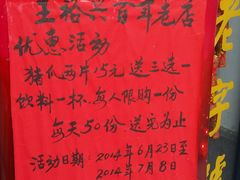 王裕兴百年老店
优惠活动
猪爪两片15元送三选一
饮料一杯.每人限购一份
每天50份送完为止
活动日期:2014年6月23日至
2014年7月8日
老字号